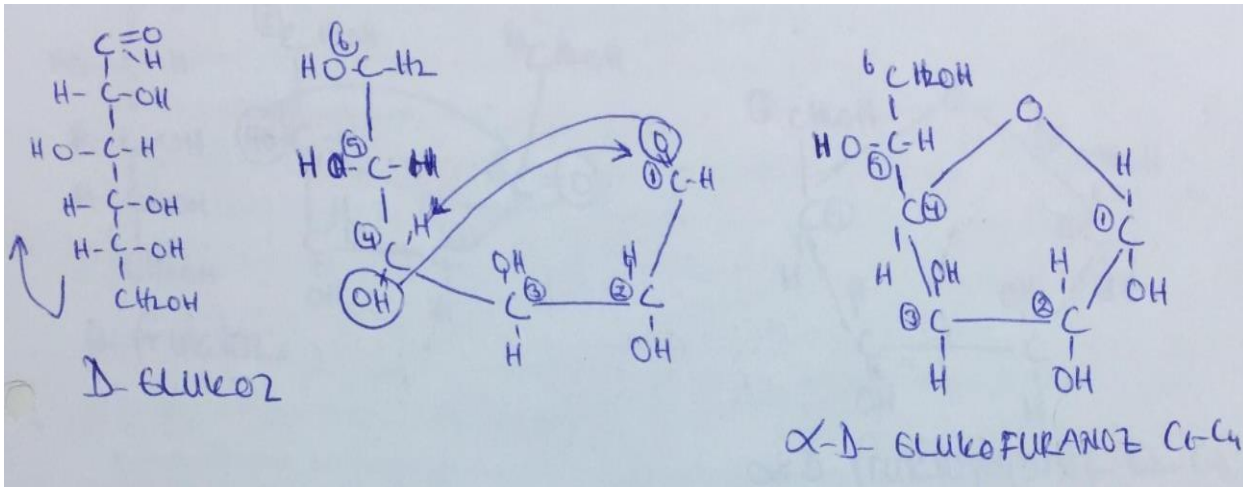 C=O
H
H-C-OH
HO-C-H
H-C-OH
H-C-OH
CH2OH
D-GLUKOZ
6
HO-C-H2
5
4
C H
OH
OH
3
C
H
H
2
C
OH
O
1
C-H
6
CH2OH
HO-C-H
5
C 4
H
OH
3
C
H
H
2
C
OH
O
H
1
C
OH
α-D-GLUKOFURANOZ C1-C4